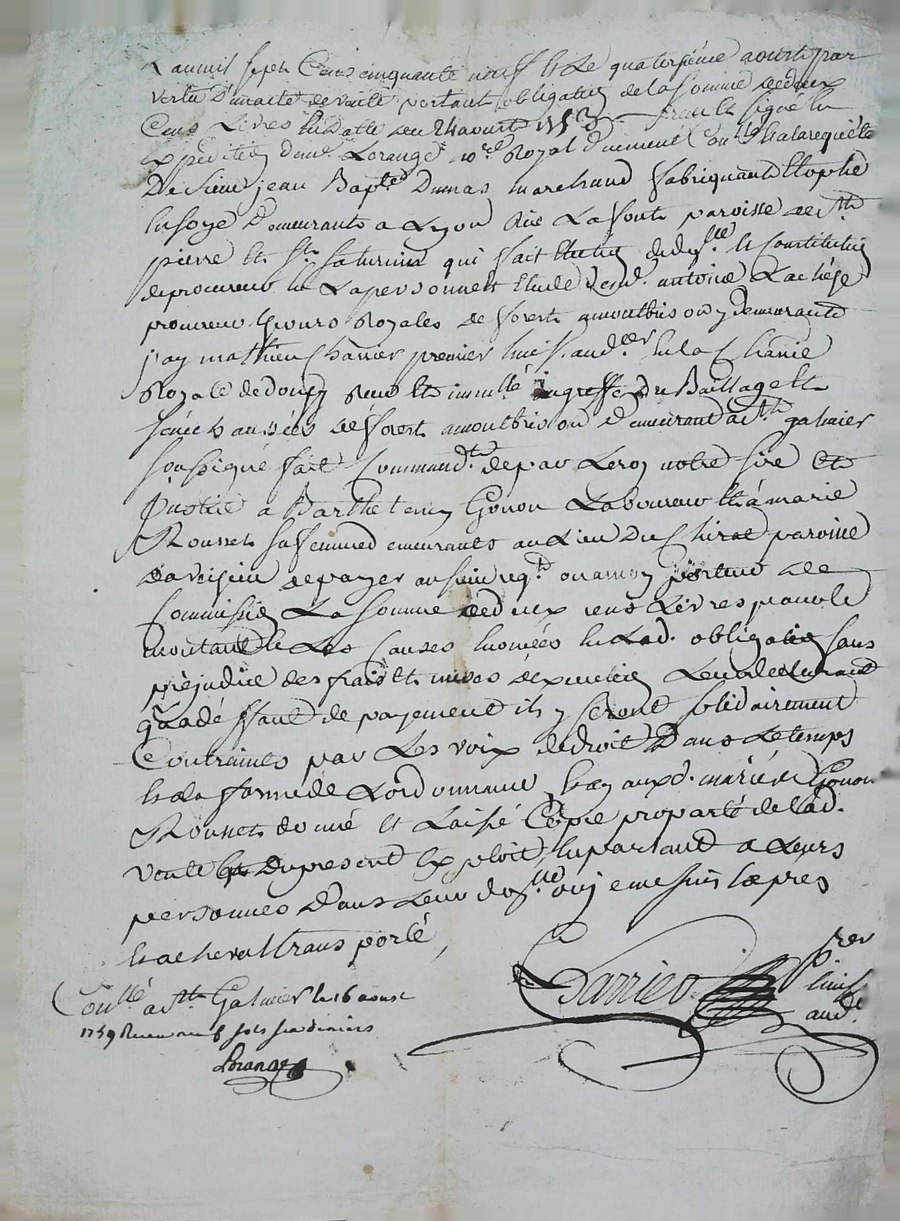 Lan mil sept Cens cinquante neuf et Le quatorzieme aoust par
vertu D'un acte de vente portant obligation de la somme de deux
Cens Livres en datte du 24 aoust 1752 signé En
Expedition dun. Lorange no.re Royal duement Con.llé a la requette
De sieur jean Bap.te Dumas marchand fabriquant Etophe
En soye Demeurant a Lyon Rüe La font paroisse de S.t
pierre Et S.t saturnin qui fait Election de dom.lle Et Constitution
de procureur En La personne et Etude de m.e antoine Lachéze
procureur Es cours Royales de forest a montbrison y demeurant
j'ay mathieu Charrier premier huiss. aud.er En la Ch.nie
Royale de Receu et immt.llé au greffe du Baillage Et
sénéchaussées de forest a montbrison demeurant a S.t galmier
soussigné fait Command.t de par Le roy notre sire Et
justice a Barthelemy Gonon Laboureur Et a marie
Rousset sa femme demeurants au Lieu du Chirat paroisse
de payer au sieur req.t ou a moy porteur de
Commission La somme de deux cens Livres pour le
montant Et Les Causes Enoncées En Lad. obligation sans
préjudice des frais Et mises d'Execution Leur declarant
qu'a deffaut de payement ils y seront solidairement
Contraints par Les voix de droit Dans Le temps
Et de la forme de Lordonnance, Et ay auxd. mariés Gonon
Rousset donné Et Laissé Copie proparté de Lad.
vente Et du present Exploit, En parlant a Leurs
personnes Dans Leur dom.lle ou je me suis Exprés
Et a cheval transporté
Charrier p.rer
huiss.
aud.r
Con.llé a S.t Galmier le 16 aoust
1759 Receu neuf sols six deniers
Lorange